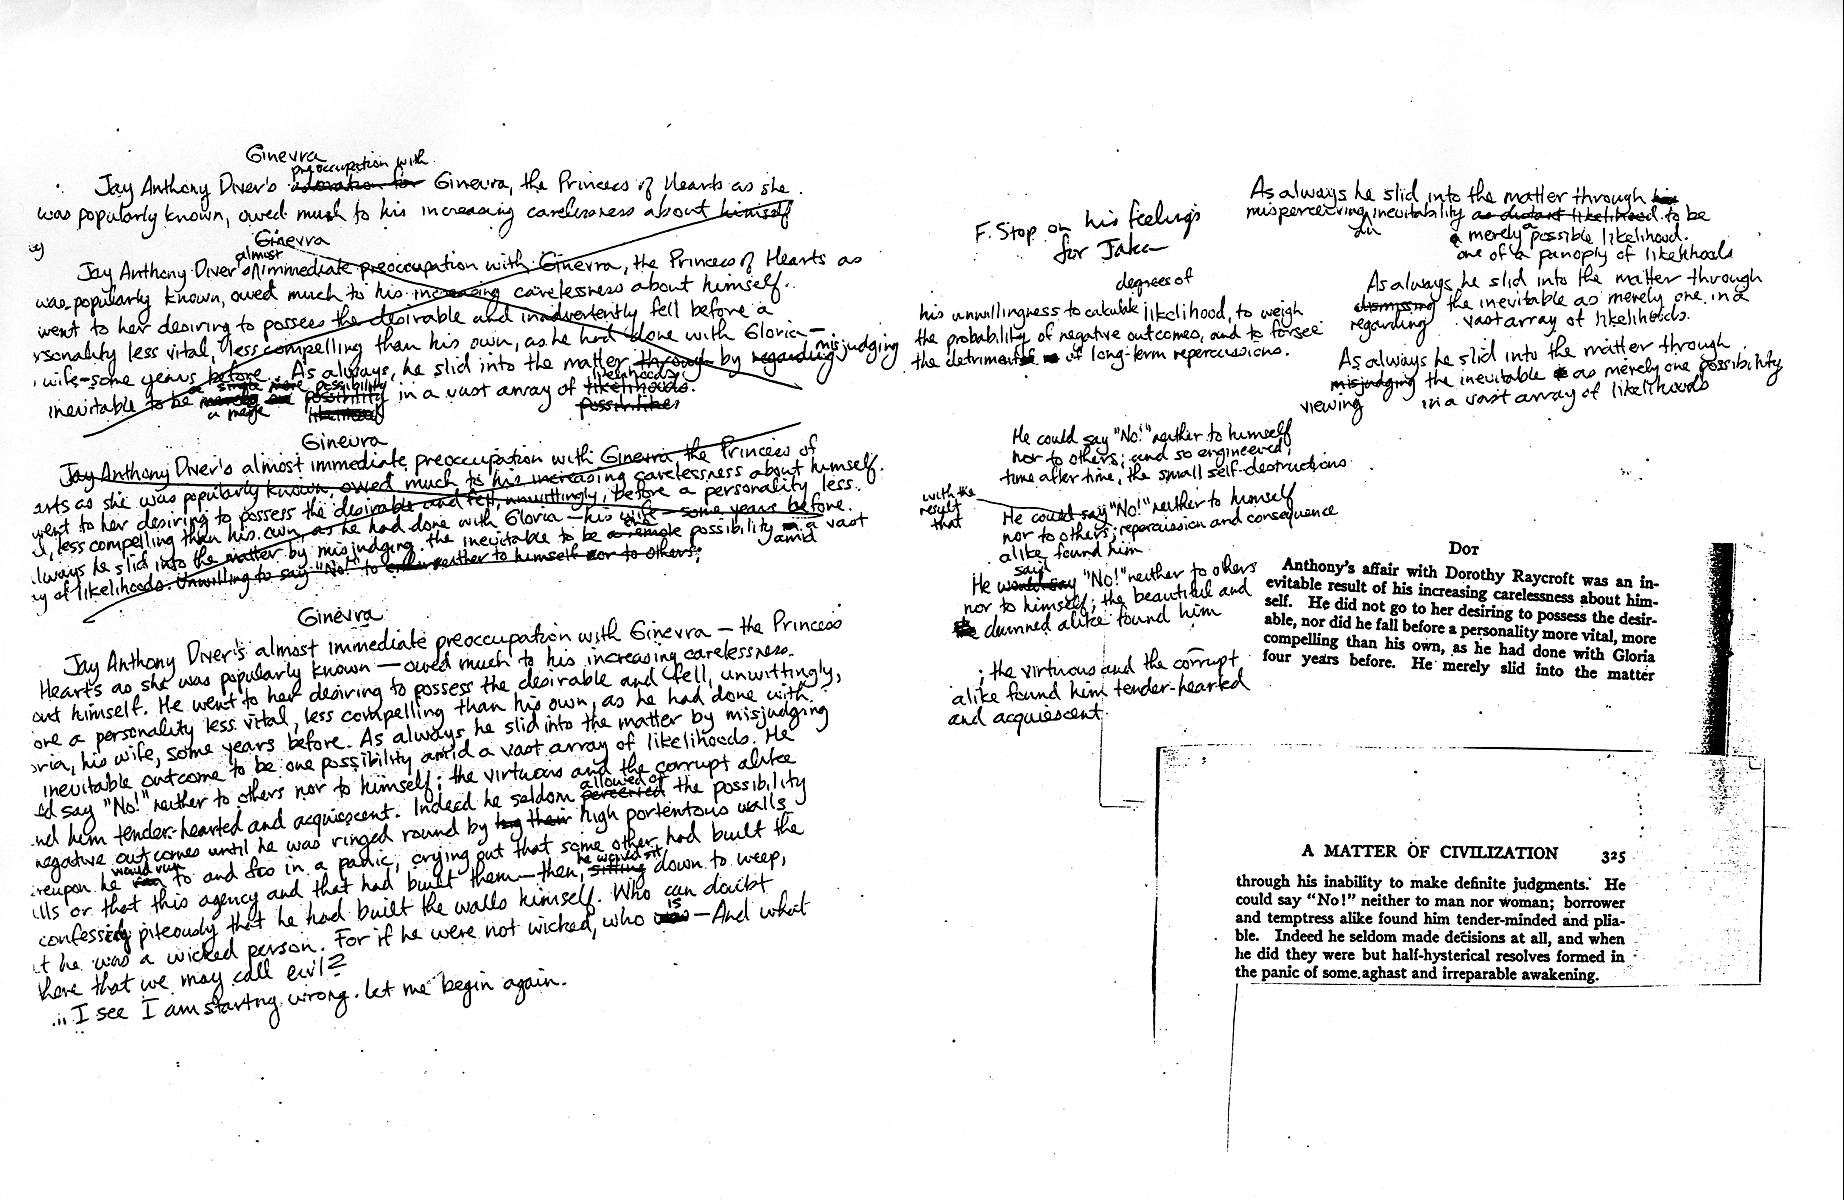 Ginevra
preoccupation with
Jay Anthony Diver's adoration for Ginevra, the Princess of Hearts as she
was popularly known, owed much to his increasing carelessness about himself
Ginevra
almost
Jay Anthony Diver's immediate preoccupation with Ginevra, the Princess of Hearts as
was popularly known, owed much to his increasing carelessness about himself.
went to her desiring to possess the desirable and inadvertently fell before a
rsonality less vital, less compelling than his own, as he had done with Gloria—
wife—some years before. As always, he slid into the matter through by regarding misjudging
likelihoods
a single mere possibility
inevitable to be merely one possibility in a vast array of likelihoods.
a mere likelihood possibilities
Ginevra
Jay Anthony Diver's almost immediate preoccupation with Ginevra, the Princess of
arts as she was popularly known, owed much to his increasing carelessness about himself.
went to her desiring to possess the desirable and fell, unwittingly, before a personality less
l, less compelling than his own, as he had done with Gloria—his wife—some years before.
lways he slid into the matter by misjudging the inevitable to be a remote possibility a vast
one amid
y of likelihoods. Unwilling to say "No!" to neither to himself nor to others;
Ginevra
Jay Anthony Diver's almost immediate preoccupation with Ginevra — the Princess
Hearts as she was popularly known — owed much to his increasing carelessness
out himself. He went to her desiring to possess the desirable and fell, unwittingly,
ore a personality less vital, less compelling than his own, as he had done with
oria, his wife, some years before. As always he slid into the matter by misjudging
inevitable outcome to be one possibility amid a vast array of likelihoods. He
ld say "No!" neither to others nor to himself; the virtuous and the corrupt alike
allowed of
nd him tender-hearted and acquiescent. Indeed he seldom perceived the possibility
negative outcomes until he was ringed round by their high portentous walls
would run
reupon he ran to and fro in a panic, crying out that some other had built the
he would sit
lls or that this agency and that had built them—then, sitting down to weep,
confessing piteously that he had built the walls himself. Who can doubt
is
t he was a wicked person. For if he were not wicked, who was —And what
here that we may call evil?
... I see I am starting wrong. Let me begin again.
F. Stop on his feelings
for Jake
degrees of
his unwillingness to calculate likelihood, to weigh
the probability of negative outcomes, and to forsee
the detriments of long-term repercussions.
As always he slid into the matter through his
misperceiving inevitability as distant likelihood to be
an
a merely possible likelihood.
one of a panoply of likelihoods
As always he slid into the matter through
dismissing the inevitable as merely one in a
regarding vast array of likelihoods.
As always he slid into the matter through
misjudging the inevitable as merely one possibility
viewing in a vast array of likelihoods
He could say "No!" neither to himself
nor to others; and so engineered,
time after time, the small self-destructions
with the
result
that
He could say "No!" neither to himself
nor to others; repercussion and consequence
alike found him
said
He would say "No!" neither to others
nor to himself; the beautiful and
the damned alike found him
; the virtuous and the corrupt
alike found him tender-hearted
and acquiescent.
Dot
Anthony's affair with Dorothy Raycroft was an in-
evitable result of his increasing carelessness about him-
self. He did not go to her desiring to possess the desir-
able, nor did he fall before a personality more vital, more
compelling than his own, as he had done with Gloria
four years before. He merely slid into the matter
A MATTER OF CIVILIZATION 325
through his inability to make definite judgments. He
could say "No!" neither to man nor woman; borrower
and temptress alike found him tender-minded and plia-
ble. Indeed he seldom made decisions at all, and when
he did they were but half-hysterical resolves formed in
the panic of some aghast and irreparable awakening.